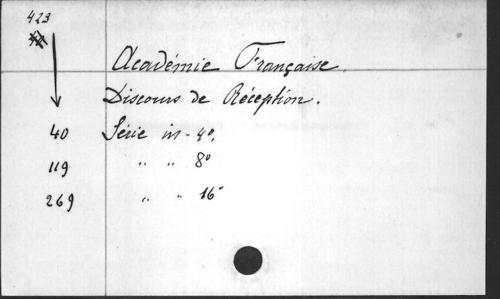 423
Académie Française.
Discours de Réception.
40 Série in-4°,
119 " " 8°
269 " " 16°